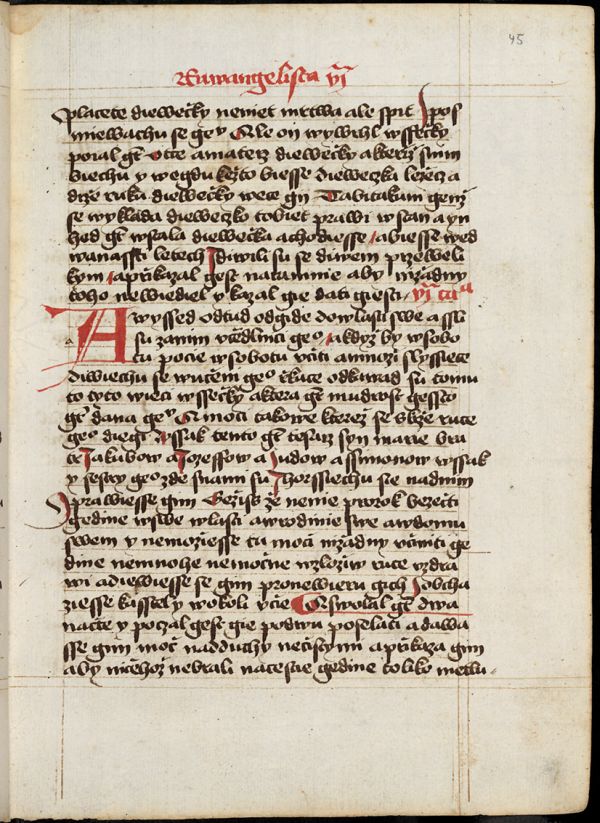 45
Ewwangelista vi
placete dieweczky neniet mrtwa ale spit I pos
miewachu se geo Ale on wywrhl wssieczky
poial gt otce a materz dieweczky a kterzi s nim
biechu y wegdu kdezto biesse dieweczka lezieczi a
drze ruku dieweczky wece gy Tabitakumi genz
se wyklada dieweczko tobiet prawi wstan a yh
hed gt wstala dieweczka a chodiesse a biesse we d
wanaszti letech I diwili su se diwem przeweli
kym a prikazal gest nataiemnie aby nizadny
toho newiediel y kazal gie dati giesti vi ca
A wyssed odtud odgide do wlasti swe a ssli
su za nim vczedlnici geo a kdyz by w sobo
tu pocze w sobotu vciti a mnozi slyssiece
diwiechu se vczeni geo rkuce odkawad su tomu
to tyto wieci wssieczky a ktera gt mudrost gessto
gt dana geo A moci takowe kterez se skrze ruce
geo diegi wssak tento gt tesarz syn marie bra
tr Jakubow a Jozeffow a Judow a ssimonow wssak
y sestry geo zde s nami su I horssiechu se nad nim
I prawiesse gim Gezis ze nenie prorok bezecti
gedine w swe wlasti a w rodinie swe a w domu
swem y nemoziesse tu moci nizadny vciniti ge
dine nemnohe nemocne wzloziw ruce vzdra
wi a diwiesse se gim pro newieru gich I obcha
ziesse kasstely w okoli vcie I swolal gt dwa
nacte y poczal gest gie po dwu poselati a dawa
sse gim moc nad duchy neczistymi a prikaza gim
aby niczehoz nebrali na cestie gedine toliko metlu